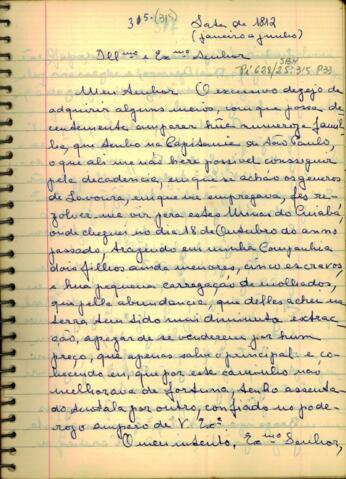 315.(315) Lata de 1812
(janeiro a junho)
SBH
Pi 628/25:315 P33
Illmo e Exmo Senhor
Meu Senhor O excessivo dezejo de
adquirir alguns meios, com que possa de-
centemente amparar hũa numeroza Jami-
lia, que tenho na Capitania de São Paulo,
o que ali me não hére possivel conseguir
pela decadencia, em que se achão os generos
de Lavoura, em que me empregava, fes re-
zolver me vir para estas Minas do Cuiabá,
onde cheguei no dia 18 de Outubro do anno
passado, trazendo em minha Companhia
dois filhos ainda menores, cinco escravos,
e hua pequena carregação de molhados,
que pella abundancia, que delles achei na
terra, tem tido mui diminuta extrac-
ção, apezar de se venderem por hum
preço, que apenas salva o principal: e co-
nhecendo eu, que por este caminho não
melhorava de fortuna, tenho assenta-
do buscala por outro, confiado no pode-
rozo amparo de V. Exª.
O meu intento, Exmo Senhor,